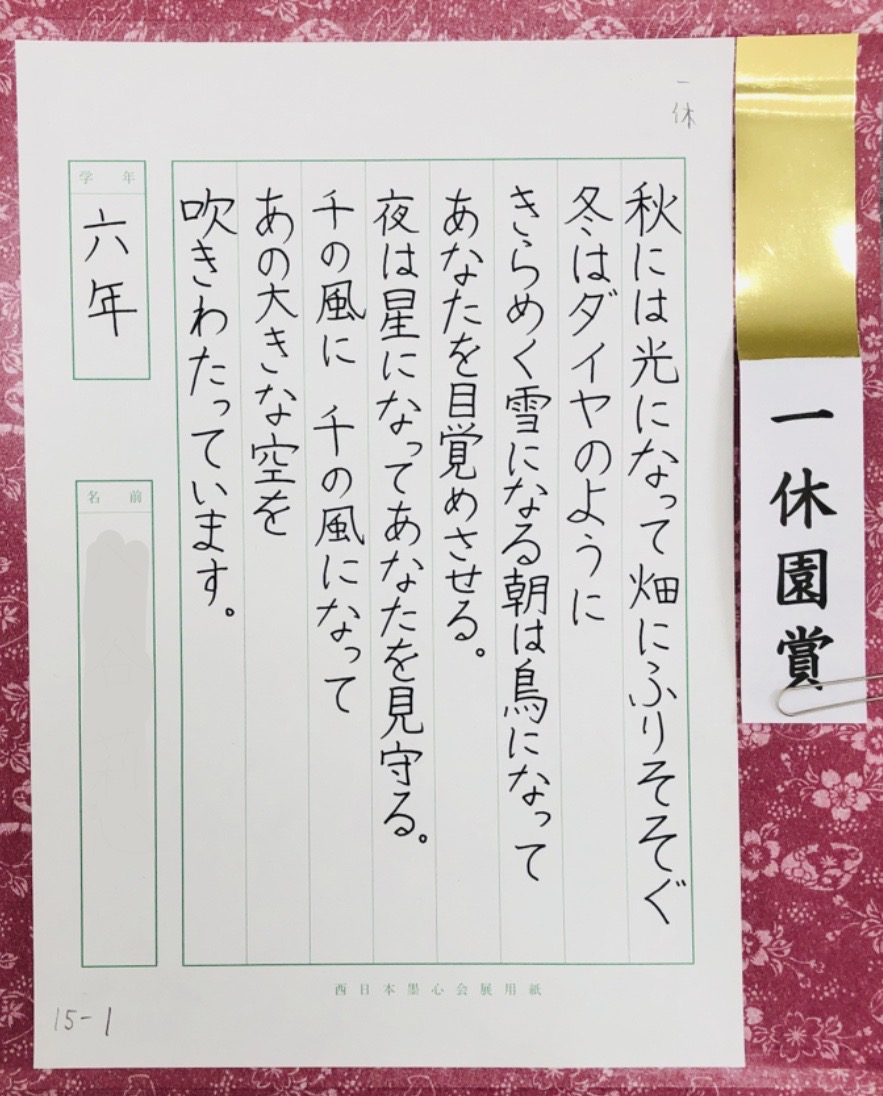 一休園賞
一休
秋には光になって畑にふりそそぐ
冬はダイヤのように
きらめく雪になる朝は鳥になって
あなたを目覚めさせる。
夜は星になってあなたを見守る。
千の風に　千の風になって
あの大きな空を
吹きわたっています。
学年
六年
名前
西日本墨心会展用紙
15-1